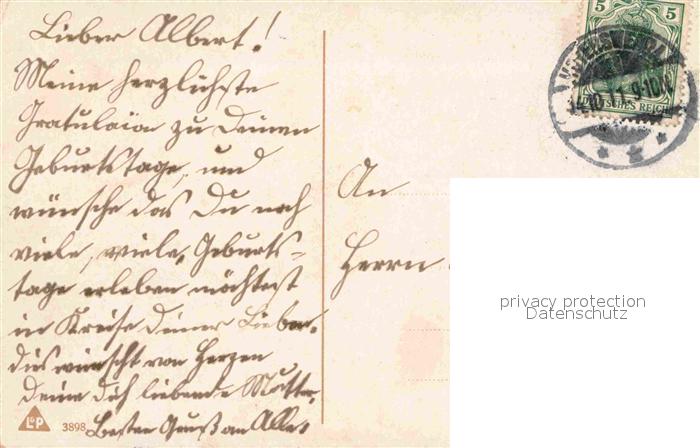 Lieber Albert!
Meine herzlichste
Gratulaion zu Deinen
Geburtstage, und
wünsche das Du noch
viele, viele, Geburts-
tage erleben möchtest
in Kreise Deiner Lieben.
dies wünscht von Herzen
Deine dich liebende Mutter.
Besten Gruß an Alle
An
Herrn
5 5
9-10V
DEUTSCHES REICH
privacy protection
Datenschutz
L&P
3898